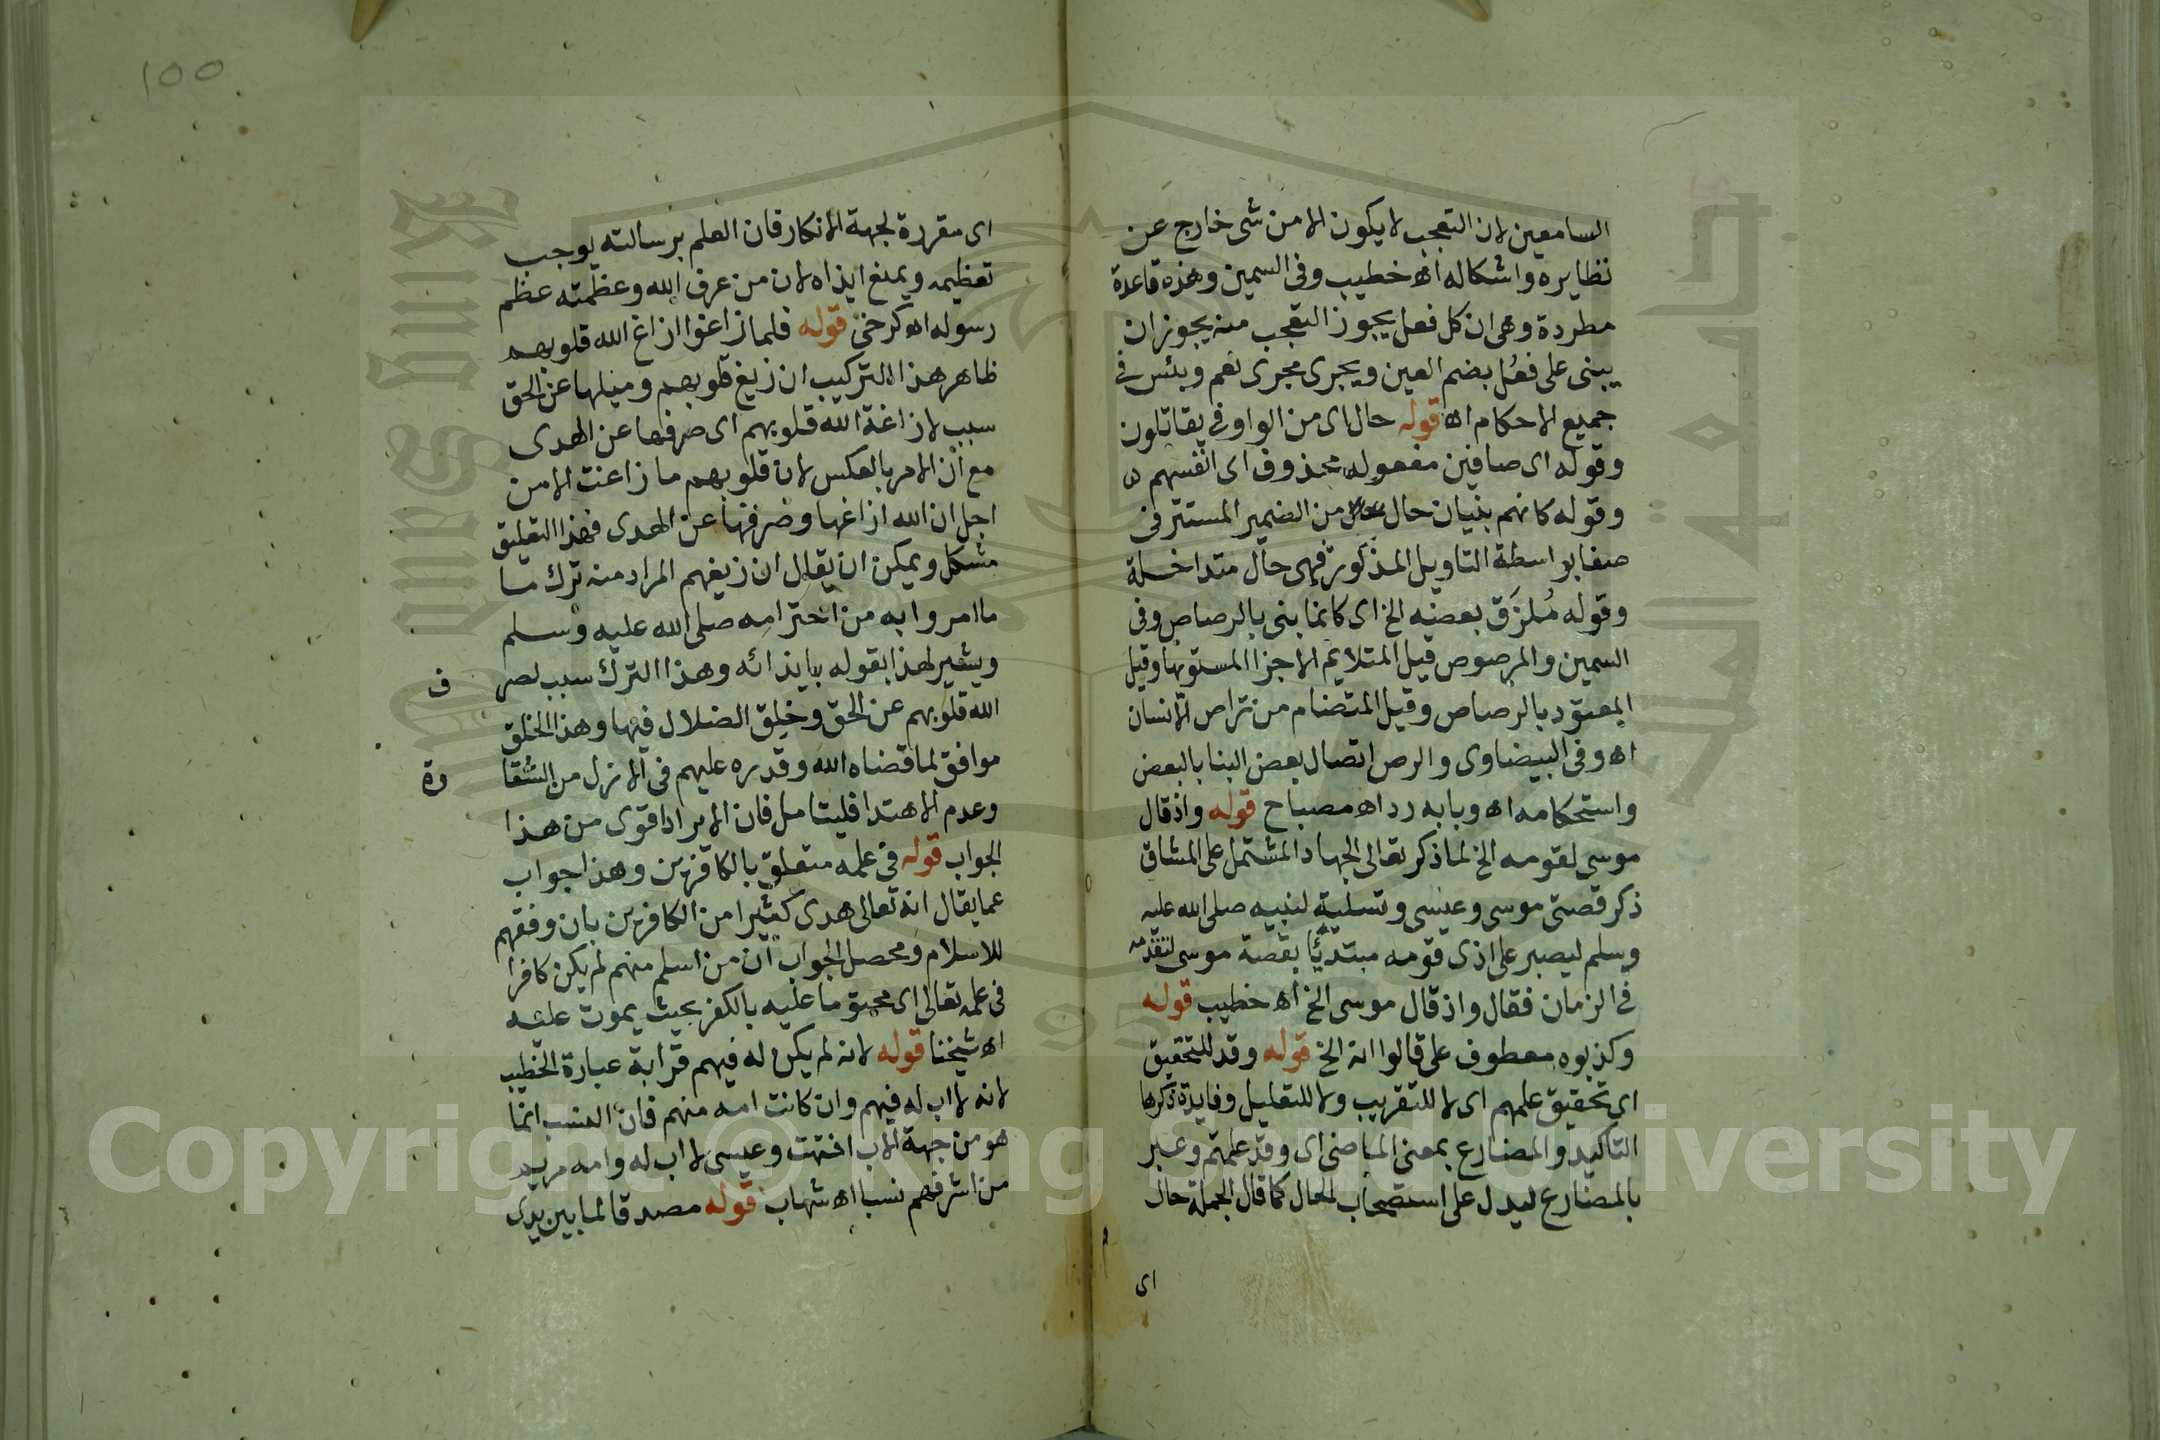 السامعين لان التعجب لا يكون الا من شى خارج عن
نظايره واشكاله اه خطيب وفى السمين وهذه قاعدة
مطردة وهى ان كل فعل يجوز التعجب منه يجوز ان
يبنى على فعُل بضم العين ويجرى مجرى نعم وبئس فى
جميع الاحكام اه قوله حال اى من الواو فى يقاتلون
وقوله اى صافين مفعوله محذوف اى انفسهم ه
وقوله كانهم بنيان حال من الضمير المستتر فى
صفا بواسطة التاويل المذكور فهى حال متداخلة
وقوله مُلزَق بعضه الخ اى كانما بنى بالرصاص وفى
السمين والمرصوص قيل المتلايم الاجزا المستويها وقيل
المعقود بالرصاص وقيل المتضام من تراص الانسان
اه وفى البيضاوى والرص اتصال بعض البنا بالبعض
واستحكامه اه وبابه رد اه مصباح قوله واذ قال
موسى لقومه الخ لما ذكر تعالى الجهاد المشتمل على المشاق
ذكر قصتى موسى وعيسى وتسلية لنبيه صلى الله عليه
وسلم ليصبر على اذى قومه مبتدئا بقصة موسى لتقدمه
فى الزمان فقال واذ قال موسى الخ اه خطيب قوله
وكذبوه معطوف على قالوا انه الخ قوله وقد للتحقيق
اى تحقيق علمهم اى لا للتقريب ولا للتقليل وفايدة ذكرها
التاكيد والمضارع بمعنى الماضى اى وقد علمتم وعبر
بالمضارع ليدل على استصحاب الحال كما قال الجملة حال
اى
100
اى مقررة لجهة الانكار فان العلم برسالته يوجب
تعظيمه ويمنع ايذاه لان من عرف الله وعظمته عظم
رسوله اه كرخى قوله فلما زاغوا ازاغ الله قلوبهم
ظاهر هذا التركيب ان زيغ قلوبهم وميلها عن الحق
سبب لازاغة الله قلوبهم اى صرفها عن الهدى
مع ان الامر بالعكس لان قلوبهم ما زاغت الا من
اجل ان الله ازاغها وصرفها عن الهدى فهذا التعليق
مشكل ويمكن ان يقال ان زيغهم المراد منه ترك ما
ما امروا به من احترامه صلى الله عليه وسلم
ويشير لهذا بقوله بايذائه وهذا الترك سبب لصر
ف
الله قلوبهم عن الحق وخلق الضلال فيها وهذا الخلق
موافق لما قضاه الله وقدره عليهم فى الازل من الشقا
وة
وعدم الاهتدا فليتامل فان الايراد اقوى من هذا
الجواب قوله فى علمه متعلق بالكافرين وهذا جواب
عما يقال انه تعالى هدى كثيرا من الكافرين بان وفقهم
للاسلام ومحصل الجواب ان من اسلم منهم لم يكن كافرا
فى علمه تعالى اى محتوما عليه بالكفر بحيث يموت عليه
اه شيخنا قوله لانه لم يكن له فيهم قرابة عبارة الخطيب
لانه لا اب له فيهم وان كانت امه منهم فان النسب انما
هو من جهة الاب انتهت وعيسى لا اب له وامه مريم
من اشرفهم نسبا اه شهاب قوله مصدقا لما بين يدى
Copyright © King Saud University